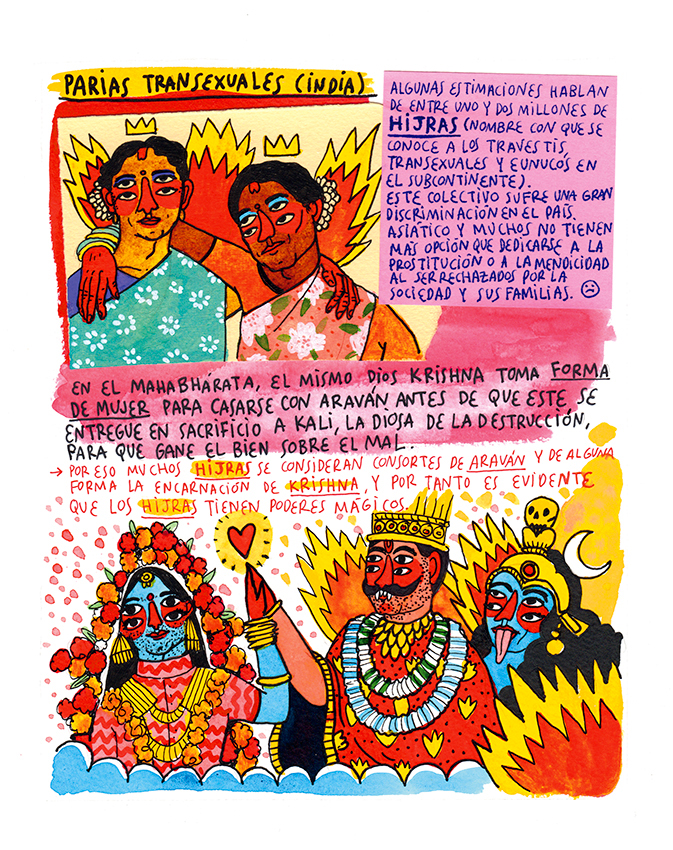 PARIAS TRANSEXUALES (INDIA)
ALGUNAS ESTIMACIONES HABLAN
DE ENTRE UNO Y DOS MILLONES DE
HIJRAS (NOMBRE CON QUE SE
CONOCE A LOS TRAVESTIS,
TRANSEXUALES Y EUNUCOS EN
EL SUBCONTINENTE).
ESTE COLECTIVO SUFRE UNA GRAN
DISCRIMINACIÓN EN EL PAÍS
ASIÁTICO Y MUCHOS NO TIENEN
MÁS OPCIÓN QUE DEDICARSE A LA
PROSTITUCIÓN O A LA MENDICIDAD
AL SER RECHAZADOS POR LA
SOCIEDAD Y SUS FAMILIAS. ☹
EN EL MAHABHÁRATA, EL MISMO DIOS KRISHNA TOMA FORMA
DE MUJER PARA CASARSE CON ARAVÁN ANTES DE QUE ESTE SE
ENTREGUE EN SACRIFICIO A KALI, LA DIOSA DE LA DESTRUCCIÓN,
PARA QUE GANE EL BIEN SOBRE EL MAL.
→ POR ESO MUCHOS HIJRAS SE CONSIDERAN CONSORTES DE ARAVÁN Y DE ALGUNA
FORMA LA ENCARNACIÓN DE KRISHNA, Y POR TANTO ES EVIDENTE
QUE LOS HIJRAS TIENEN PODERES MÁGICOS.